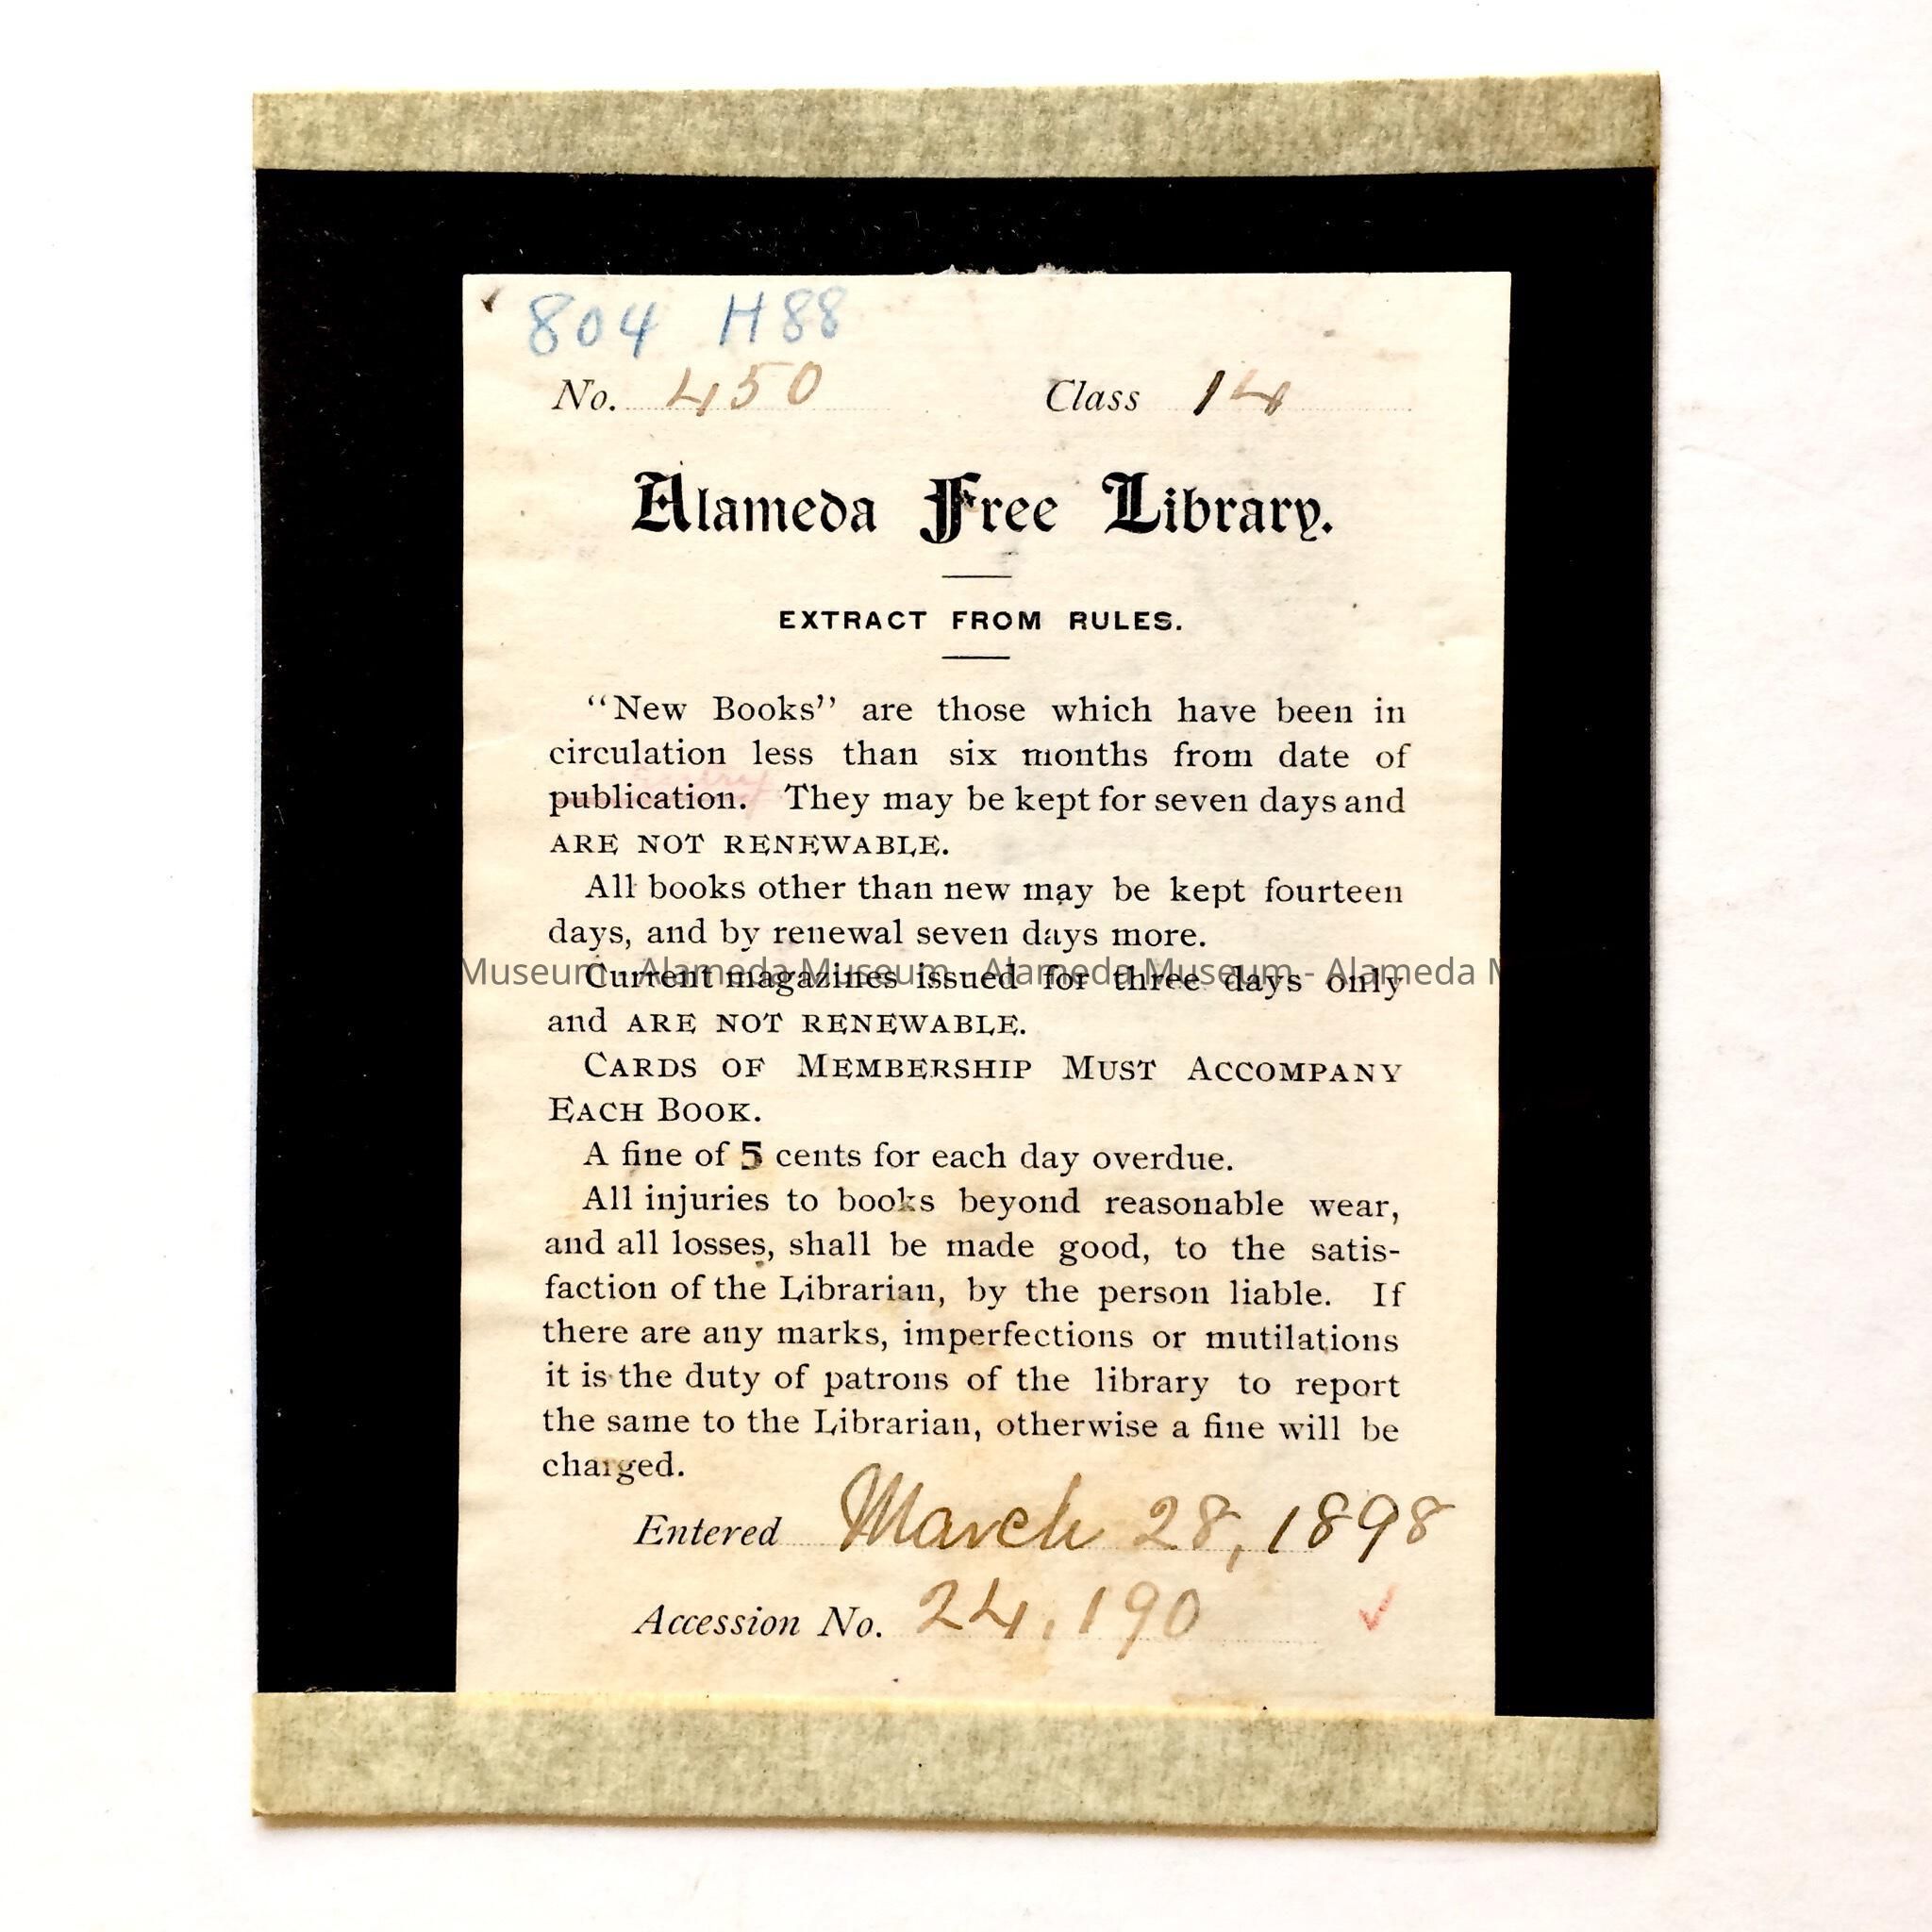 804 H88
No. 450 Class 14
Alameda Free Library.
EXTRACT FROM RULES.
“New Books” are those which have been in
circulation less than six months from date of
entry
publication. They may be kept for seven days and
ARE NOT RENEWABLE.
All books other than new may be kept fourteen
days, and by renewal seven days more.
Museum - Alameda Museum - Alameda Museum - Alameda M
Current magazines issued for three days only
and ARE NOT RENEWABLE.
CARDS OF MEMBERSHIP MUST ACCOMPANY
EACH BOOK.
A fine of 5 cents for each day overdue.
All injuries to books beyond reasonable wear,
and all losses, shall be made good, to the satis-
faction of the Librarian, by the person liable. If
there are any marks, imperfections or mutilations
it is the duty of patrons of the library to report
the same to the Librarian, otherwise a fine will be
charged.
Entered March 28, 1898
Accession No. 24,190